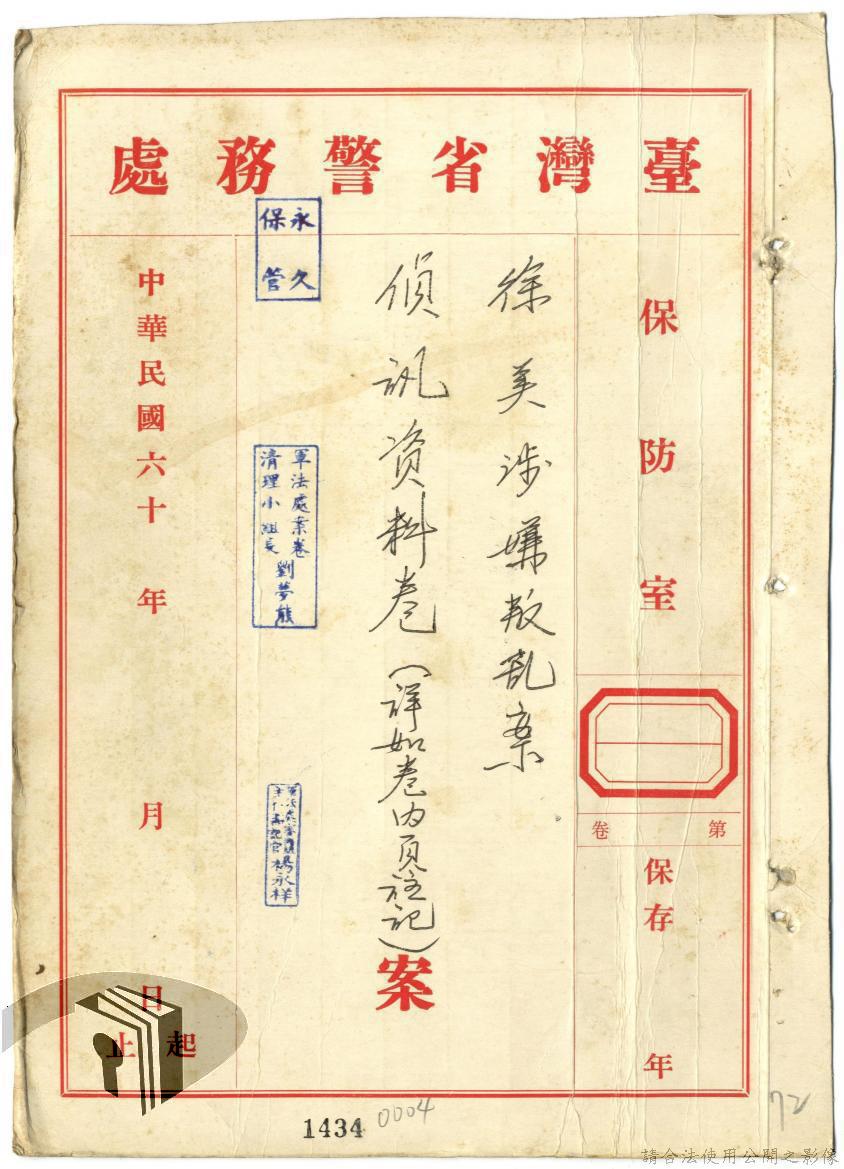 臺灣省警務處
保防室
第 卷
保存 年
徐美涉嫌叛乱案
偵訊資料卷(詳如卷內頁註記)案
永久
保管
軍法處案卷
清理小組長 劉夢熊
楊永祥
中華民國六十 年 月 日
起
止
1434
0004
72
請合法使用公開之影像